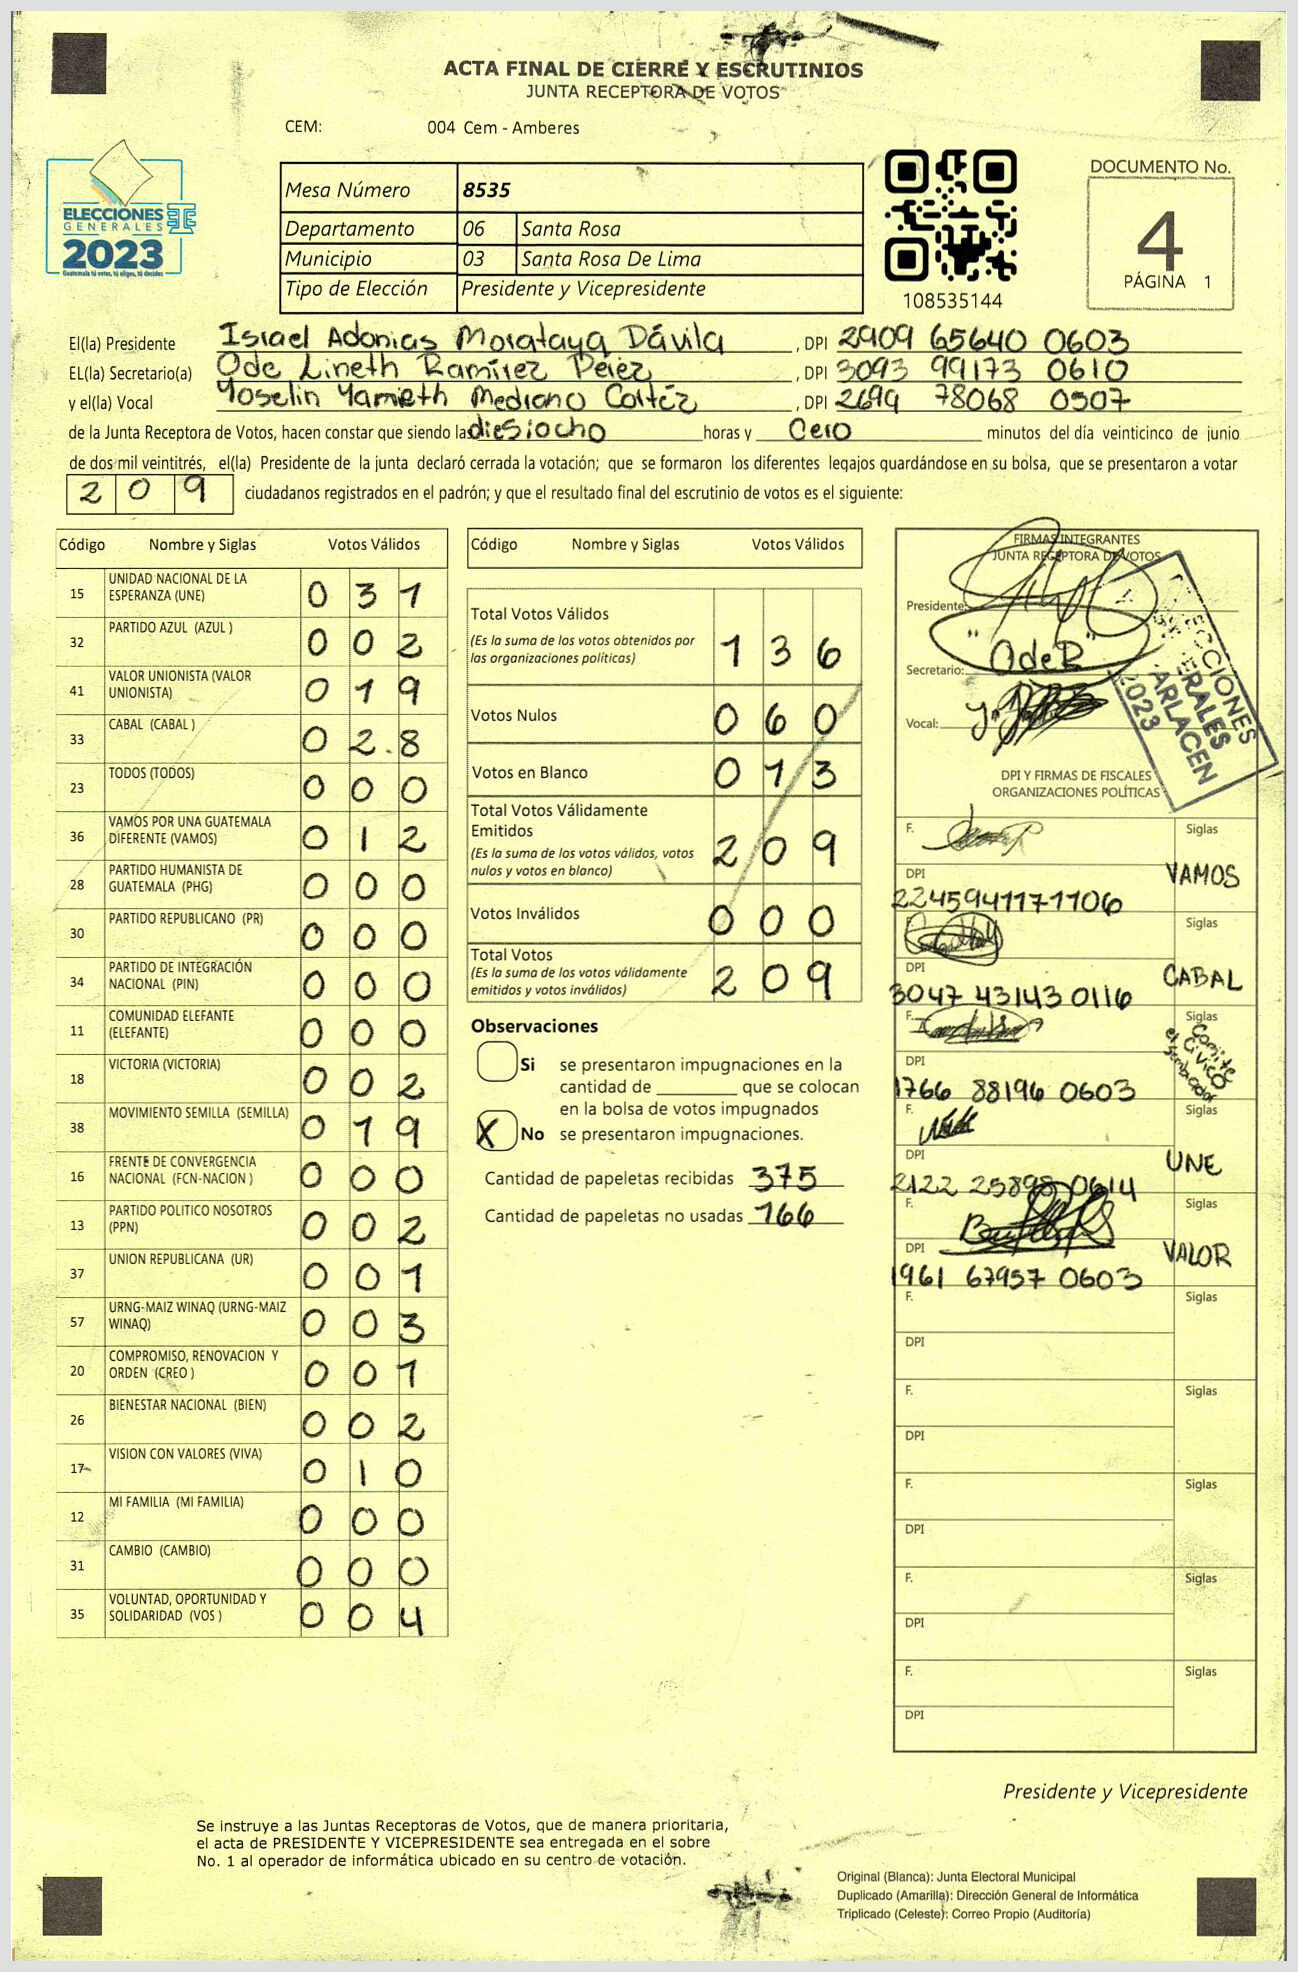 ACTA FINAL DE CIERRE Y ESCRUTINIOS
JUNTA RECEPTORA DE VOTOS
CEM: 004 Cem - Amberes
ELECCIONES
GENERALES
2023
Guatemala tú votas, tú eliges, tú decides
Mesa Número 8535
Departamento 06 Santa Rosa
Municipio 03 Santa Rosa De Lima
Tipo de Elección Presidente y Vicepresidente
108535144
DOCUMENTO No.
4
PÁGINA 1
El(la) Presidente Israel Adonias Morataya Dávila , DPI 2909 65640 0603
EL(la) Secretario(a) Ode Lineth Ramírez Pérez , DPI 3093 99173 0610
y el(la) Vocal Yoselin Yamieth Medrano Cortéz , DPI 2694 78068 0507
de la Junta Receptora de Votos, hacen constar que siendo las diesiocho horas y Cero minutos del día veinticinco de junio
de dos mil veintitrés, el(la) Presidente de la junta declaró cerrada la votación; que se formaron los diferentes legajos guardándose en su bolsa, que se presentaron a votar
209 ciudadanos registrados en el padrón; y que el resultado final del escrutinio de votos es el siguiente:
Código Nombre y Siglas Votos Válidos
15 UNIDAD NACIONAL DE LA ESPERANZA (UNE) 031
32 PARTIDO AZUL (AZUL ) 002
41 VALOR UNIONISTA (VALOR UNIONISTA) 019
33 CABAL (CABAL ) 028
23 TODOS (TODOS) 000
36 VAMOS POR UNA GUATEMALA DIFERENTE (VAMOS) 012
28 PARTIDO HUMANISTA DE GUATEMALA (PHG) 000
30 PARTIDO REPUBLICANO (PR) 000
34 PARTIDO DE INTEGRACIÓN NACIONAL (PIN) 000
11 COMUNIDAD ELEFANTE (ELEFANTE) 000
18 VICTORIA (VICTORIA) 002
38 MOVIMIENTO SEMILLA (SEMILLA) 019
16 FRENTE DE CONVERGENCIA NACIONAL (FCN-NACION ) 000
13 PARTIDO POLITICO NOSOTROS (PPN) 002
37 UNION REPUBLICANA (UR) 001
57 URNG-MAIZ WINAQ (URNG-MAIZ WINAQ) 003
20 COMPROMISO, RENOVACION Y ORDEN (CREO ) 001
26 BIENESTAR NACIONAL (BIEN) 002
17 VISION CON VALORES (VIVA) 010
12 MI FAMILIA (MI FAMILIA) 000
31 CAMBIO (CAMBIO) 000
35 VOLUNTAD, OPORTUNIDAD Y SOLIDARIDAD (VOS ) 004
Código Nombre y Siglas Votos Válidos
Total Votos Válidos
(Es la suma de los votos obtenidos por las organizaciones políticas) 136
Votos Nulos 060
Votos en Blanco 013
Total Votos Válidamente Emitidos
(Es la suma de los votos válidos, votos nulos y votos en blanco) 209
Votos Inválidos 000
Total Votos
(Es la suma de los votos válidamente emitidos y votos inválidos) 209
Observaciones
Si se presentaron impugnaciones en la
cantidad de ________ que se colocan
en la bolsa de votos impugnados
X No se presentaron impugnaciones.
Cantidad de papeletas recibidas 375
Cantidad de papeletas no usadas 166
FIRMAS INTEGRANTES
JUNTA RECEPTORA DE VOTOS
Presidente:
Secretario: "OdeR"
Vocal:
2023
DPI Y FIRMAS DE FISCALES
ORGANIZACIONES POLÍTICAS
F. Siglas
VAMOS
DPI
2245941171106
F. Siglas
CABAL
DPI
3047 43143 0116
F. Siglas
Comite Civico el Sembrador
DPI
1766 88196 0603
F. Siglas
UNE
DPI
2122 25898 0614
F. Siglas
VALOR
DPI
1961 67957 0603
F. Siglas
DPI
F. Siglas
DPI
F. Siglas
DPI
F. Siglas
DPI
F. Siglas
DPI
Presidente y Vicepresidente
Se instruye a las Juntas Receptoras de Votos, que de manera prioritaria,
el acta de PRESIDENTE Y VICEPRESIDENTE sea entregada en el sobre
No. 1 al operador de informática ubicado en su centro de votación.
Original (Blanca): Junta Electoral Municipal
Duplicado (Amarilla): Dirección General de Informática
Triplicado (Celeste): Correo Propio (Auditoría)